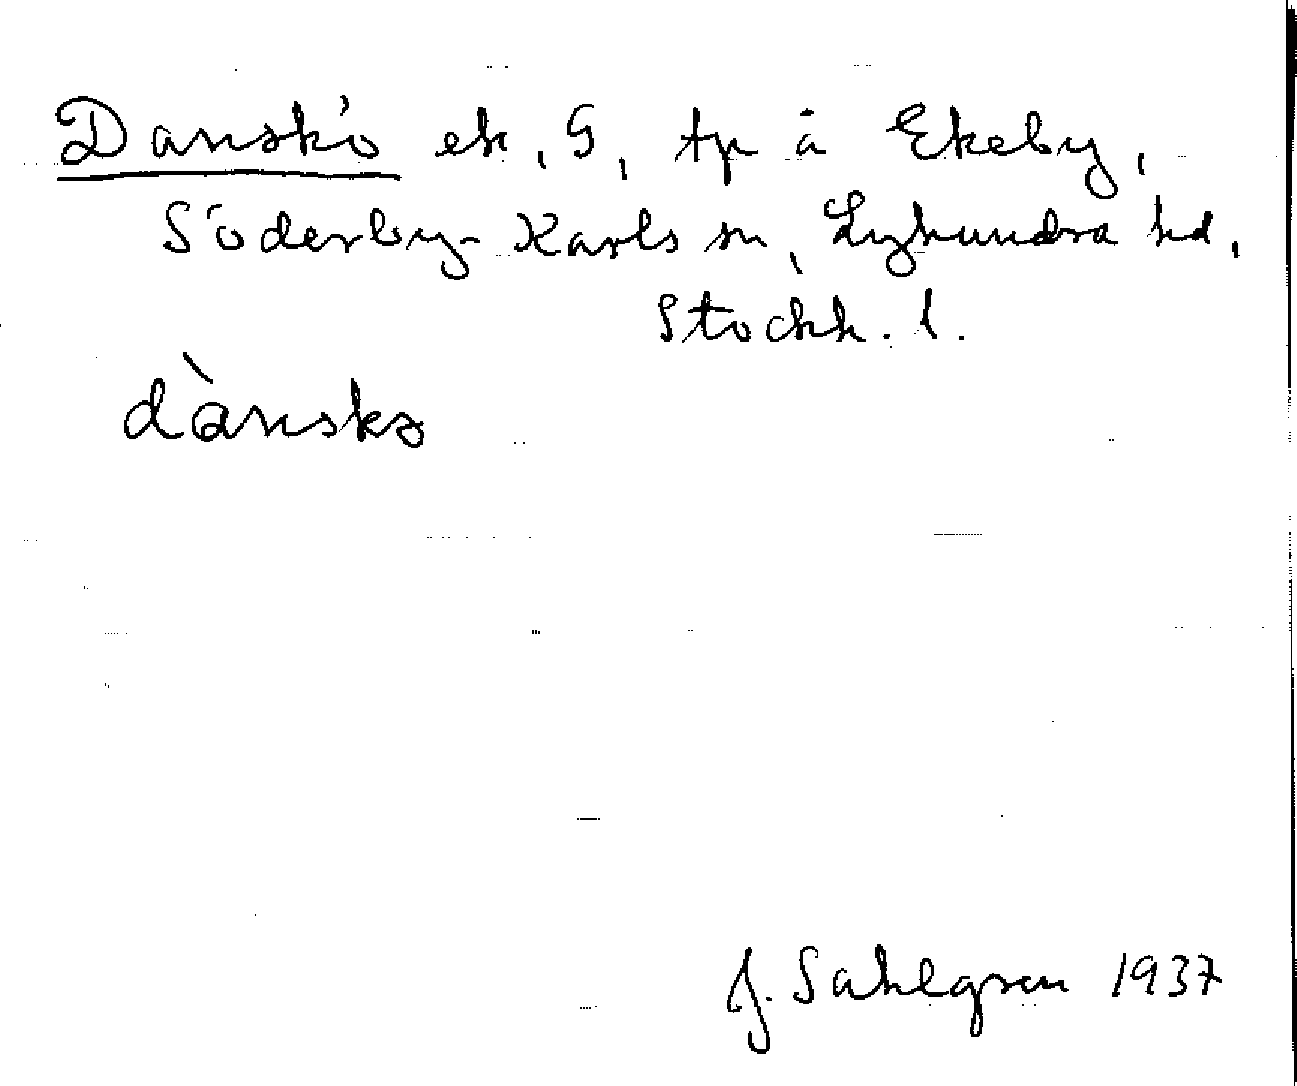 Danskö ek, G, tp å Ekeby,
Söderby-Karls sn, Lyhundra hd,
Stockh. l.
dànskə
J. Sahlgren 1937